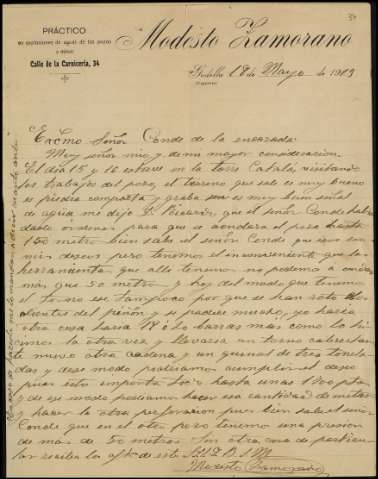 PRÁCTICO
en captaciones de aguas de los pozos
y minas
Calle de la Carnicería, 34
Modesto Zamorano
Godella 18 de Mayo de 1919
Excmo Señor Conde de la
Muy señor mio y de mi mayor consideracion.
El dia 15 y 16 estuve en la torre Catalá, visitando
los trabajos del pozo, el terreno que sale es muy bueno
es piedra compacta y graba es muy bien señal
de agua me dijo D. Ricardo que el señor Conde habia
dado ordenes para que se aondara el pozo hasta
150 metros bien sabe el señor Conde que
mis deseos pero tenemos el inconveniente que la
herramienta que alli tenemos no podemos
mas que 50 metros y hoy del modo que tenemos
el torno ese tampoco por que se han roto dos
dientes del piñon y se padece mucho, yo haria
otra cosa haria 18 ó 20 barras mas como lo hi
cimos la otra vez y llevaria un torno cabrestan
te nuevo otra cadena y un guinal de tres tonela
das y dese modo podriamos cumplir el deseo
pues esto importa hasta unas ptas
y de ese modo podiamos hacer esa cantidad de metros
y hacer la otra perforacion pues bien sabe el señor
Conde que en el otro pozo tenemos una presion
de mas de 50 metros. Sin otra cosa de particu
lar reciba el afto de este S.S.S. Q. B. S. M.
Modesto Zamorano